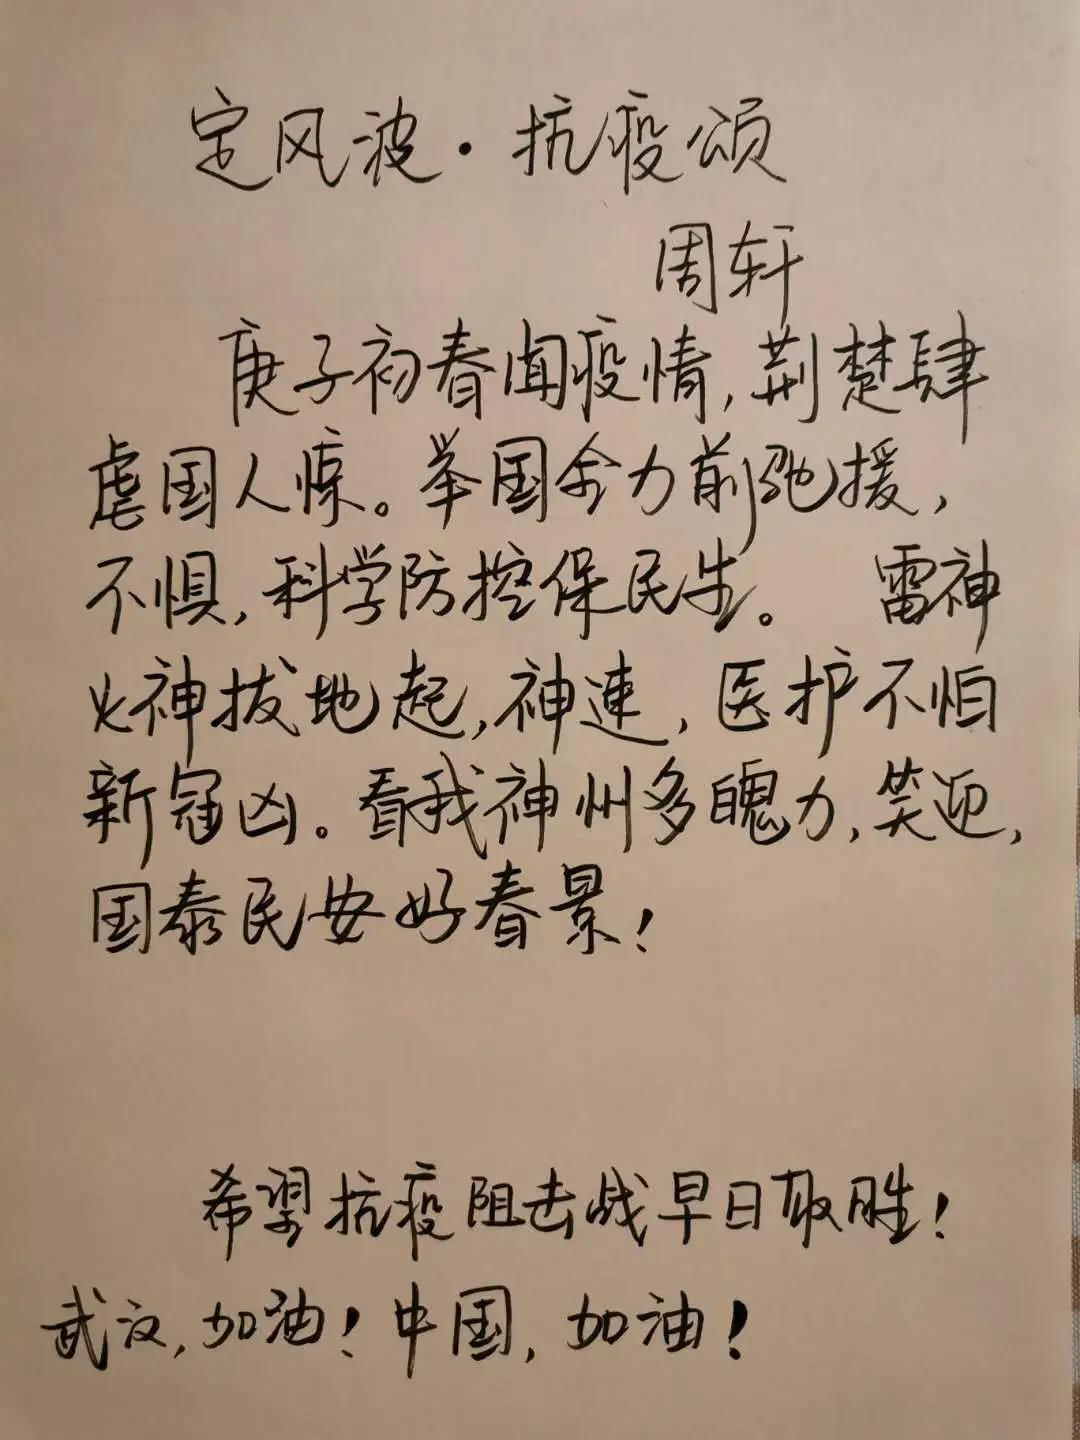 定风波·抗疫颂
周轩
庚子初春闻疫情,荆楚肆
虐国人惊。举国全力前驰援,
不惧,科学防控保民生。 雷神
火神拔地起,神速,医护不怕
新冠凶。看我神州多魄力,笑迎,
国泰民安好春景!
希望抗疫阻击战早日取胜!
武汉,加油!中国,加油!